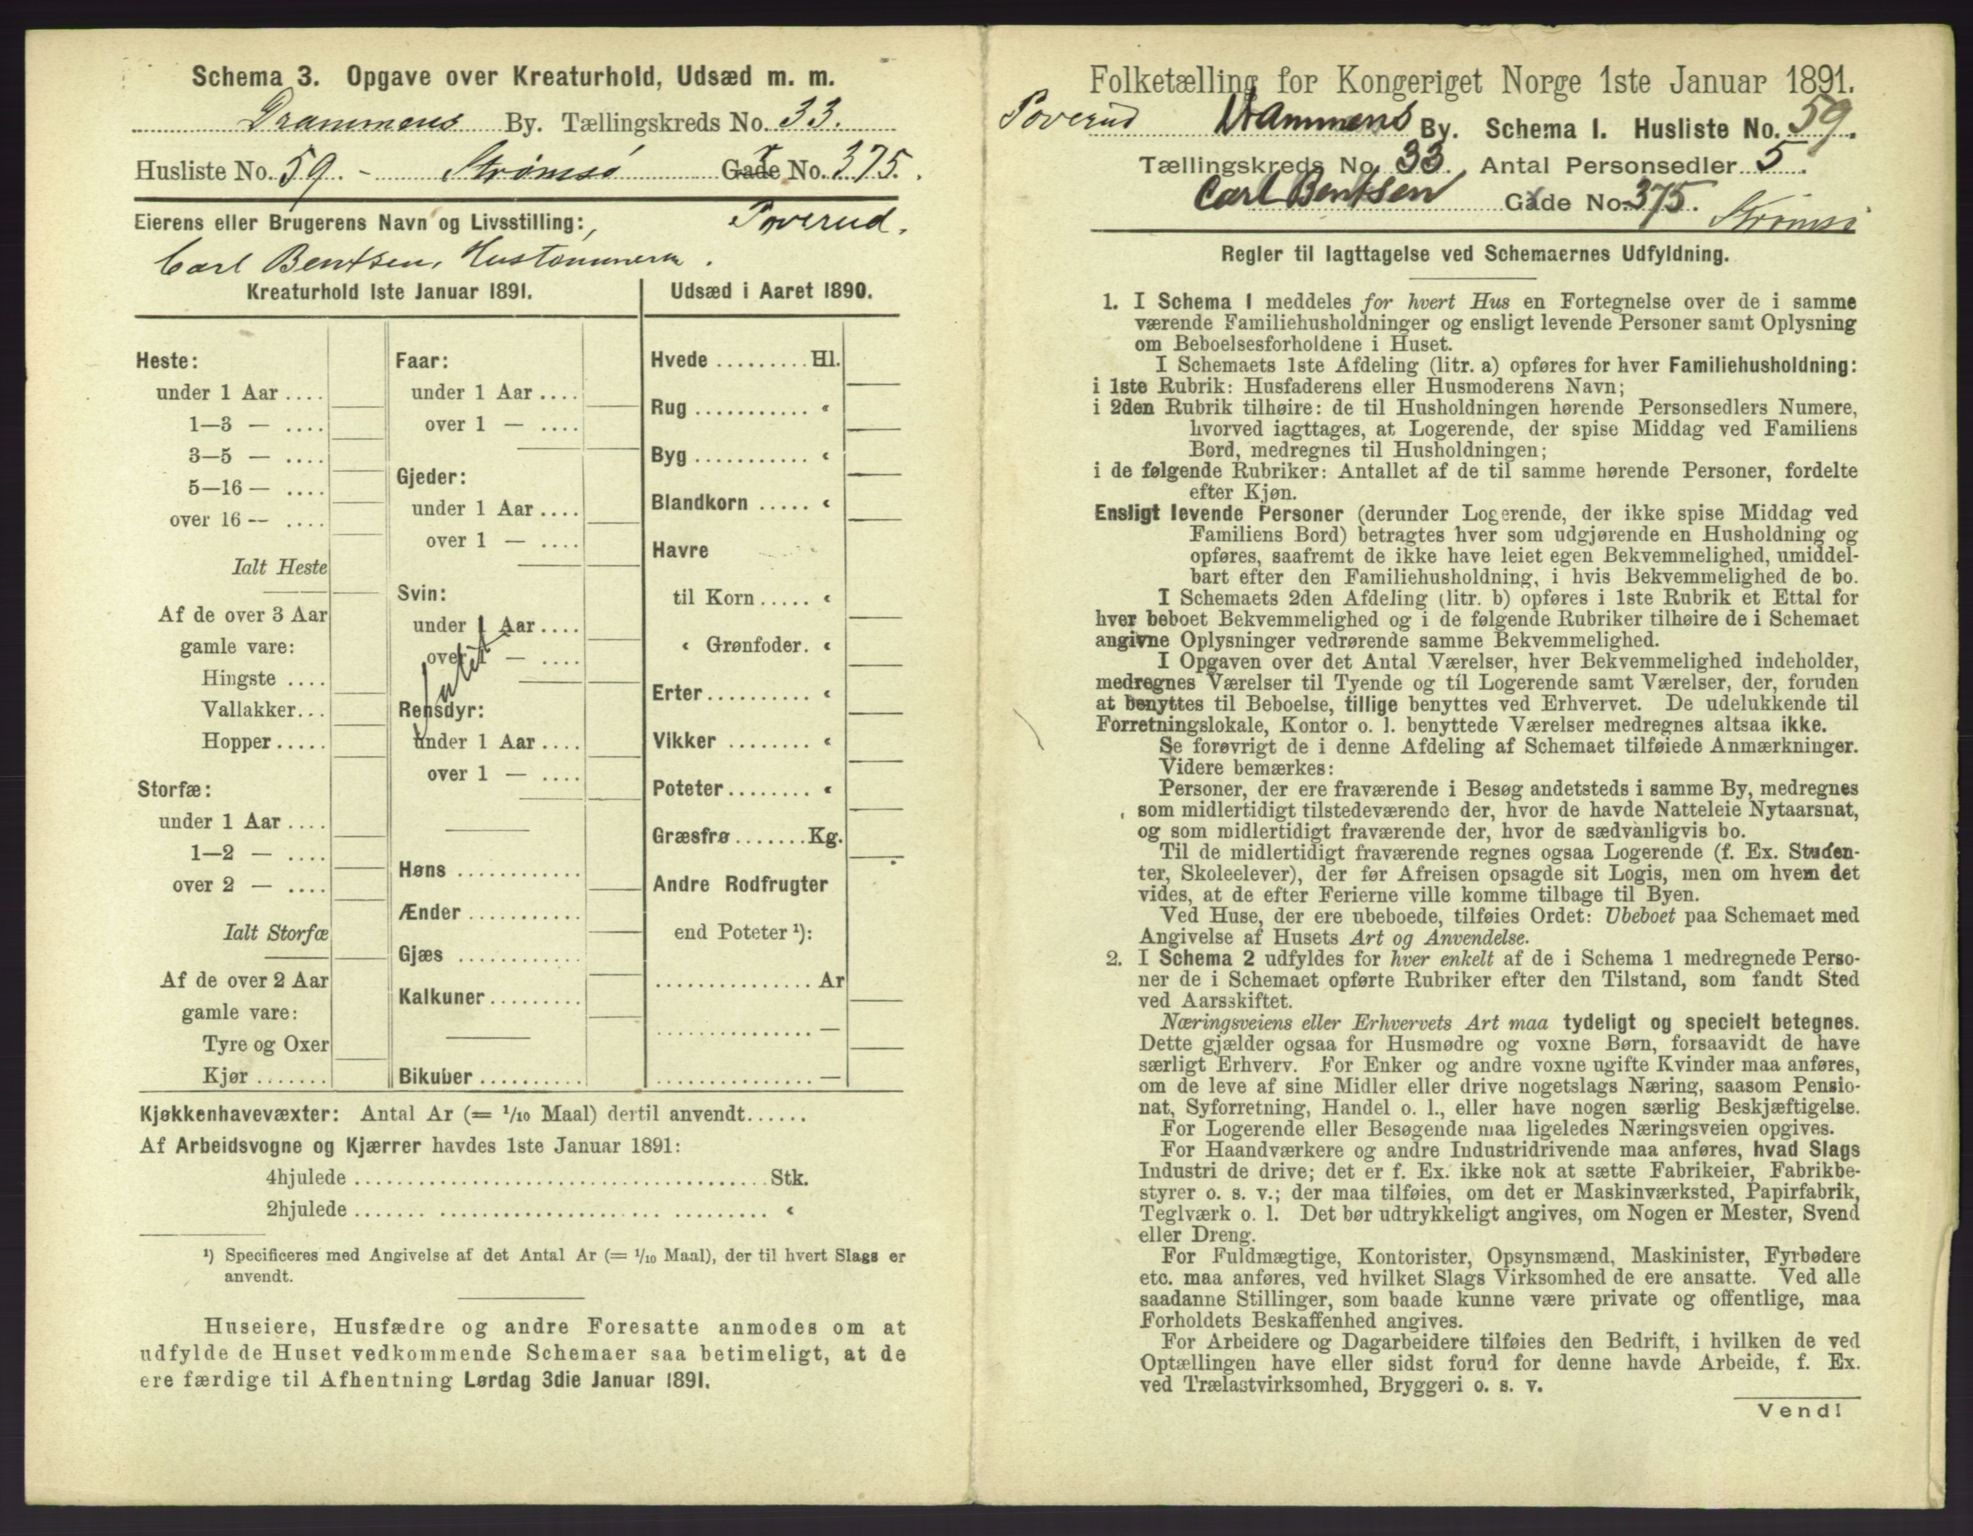 Schema 3. Opgave over Kreaturhold, Udsæd m. m.
Drammens By. Tællingskreds No. 33.
Husliste No. 59. - Strømsø Gade No. 375.
Eierens eller Brugerens Navn og Livsstilling: Poverud.
Carl Bentsen, Hustømmerm.
Kreaturhold 1ste Januar 1891.
Heste:
under 1 Aar ....
1—3 — ....
3—5 — ....
5—16 — ....
over 16 — ....
Ialt Heste
Af de over 3 Aar
gamle vare:
Hingste ....
Vallakker...
Hopper.....
Storfæ:
under 1 Aar ....
1—2 — ....
over 2 — ....
Ialt Storfæ
Af de over 2 Aar
gamle vare:
Tyre og Oxer
Kjør.......
Faar:
under 1 Aar ....
over 1 — ....
Gjeder:
under 1 Aar ....
over 1 — ....
Svin:
under 1 Aar ....
over 1 — ....
Intet
Rensdyr:
under 1 Aar ....
over 1 — ....
Høns ............
Ænder ...........
Gjæs ............
Kalkuner.........
Bikuber ..........
Udsæd i Aaret 1890.
Hvede ......... Hl.
Rug ........... «
Byg ........... «
Blandkorn ..... «
Havre
til Korn ..... «
« Grønfoder. «
Erter .......... «
Vikker ........ «
Poteter ........ «
Græsfrø ....... Kg.
Andre Rodfrugter
end Poteter ¹):
............... Ar
............... —
............... —
Kjøkkenhavevæxter: Antal Ar (= 1/10 Maal) dertil anvendt......
Af Arbeidsvogne og Kjærrer havdes 1ste Januar 1891:
4hjulede ........................................ Stk.
2hjulede ........................................ «
¹) Specificeres med Angivelse af det Antal Ar (= 1/10 Maal), der til hvert Slags er
anvendt.
Huseiere, Husfædre og andre Foresatte anmodes om at
udfylde de Huset vedkommende Schemaer saa betimeligt, at de
ere færdige til Afhentning Lørdag 3die Januar 1891.
Folketælling for Kongeriget Norge 1ste Januar 1891.
Poverud Drammens By. Schema I. Husliste No. 59.
Tællingskreds No. 33. Antal Personsedler 5.
Carl Bentsen Gade No. 375. Strømsø
Regler til Iagttagelse ved Schemaernes Udfyldning.
1. I Schema I meddeles for hvert Hus en Fortegnelse over de i samme
værende Familiehusholdninger og ensligt levende Personer samt Oplysning
om Beboelsesforholdene i Huset.
I Schemaets 1ste Afdeling (litr. a) opføres for hver Familiehusholdning:
i 1ste Rubrik: Husfaderens eller Husmoderens Navn;
i 2den Rubrik tilhøire: de til Husholdningen hørende Personsedlers Numere,
hvorved iagttages, at Logerende, der spise Middag ved Familiens
Bord, medregnes til Husholdningen;
i de følgende Rubriker: Antallet af de til samme hørende Personer, fordelte
efter Kjøn.
Ensligt levende Personer (derunder Logerende, der ikke spise Middag ved
Familiens Bord) betragtes hver som udgjørende en Husholdning og
opføres, saafremt de ikke have leiet egen Bekvemmelighed, umiddel-
bart efter den Familiehusholdning, i hvis Bekvemmelighed de bo.
I Schemaets 2den Afdeling (litr. b) opføres i 1ste Rubrik et Ettal for
hver beboet Bekvemmelighed og i de følgende Rubriker tilhøire de i Schemaet
angivne Oplysninger vedrørende samme Bekvemmelighed.
I Opgaven over det Antal Værelser, hver Bekvemmelighed indeholder,
medregnes Værelser til Tyende og til Logerende samt Værelser, der, foruden
at benyttes til Beboelse, tillige benyttes ved Erhvervet. De udelukkende til
Forretningslokale, Kontor o. l. benyttede Værelser medregnes altsaa ikke.
Se forøvrigt de i denne Afdeling af Schemaet tilføiede Anmærkninger.
Videre bemærkes:
Personer, der ere fraværende i Besøg andetsteds i samme By, medregnes
som midlertidigt tilstedeværende der, hvor de havde Natteleie Nytaarsnat,
og som midlertidigt fraværende der, hvor de sædvanligvis bo.
Til de midlertidigt fraværende regnes ogsaa Logerende (f. Ex. Studen-
ter, Skoleelever), der før Afreisen opsagde sit Logis, men om hvem det
vides, at de efter Ferierne ville komme tilbage til Byen.
Ved Huse, der ere ubeboede, tilføies Ordet: Ubeboet paa Schemaet med
Angivelse af Husets Art og Anvendelse.
2. I Schema 2 udfyldes for hver enkelt af de i Schema 1 medregnede Perso-
ner de i Schemaet opførte Rubriker efter den Tilstand, som fandt Sted
ved Aarsskiftet.
Næringsveiens eller Erhvervets Art maa tydeligt og specielt betegnes.
Dette gjælder ogsaa for Husmødre og voxne Børn, forsaavidt de have
særligt Erhverv. For Enker og andre voxne ugifte Kvinder maa anføres,
om de leve af sine Midler eller drive nogetslags Næring, saasom Pensio-
nat, Syforretning, Handel o. l., eller have nogen særlig Beskjæftigelse.
For Logerende eller Besøgende maa ligeledes Næringsveien opgives.
For Haandværkere og andre Industridrivende maa anføres, hvad Slags
Industri de drive; det er f. Ex. ikke nok at sætte Fabrikeier, Fabrikbe-
styrer o. s. v.; der maa tilføies, om det er Maskinværksted, Papirfabrik,
Teglværk o. l. Det bør udtrykkeligt angives, om Nogen er Mester, Svend
eller Dreng.
For Fuldmægtige, Kontorister, Opsynsmænd, Maskinister, Fyrbødere
etc. maa anføres, ved hvilket Slags Virksomhed de ere ansatte. Ved alle
saadanne Stillinger, som baade kunne være private og offentlige, maa
Forholdets Beskaffenhed angives.
For Arbeidere og Dagarbeidere tilføies den Bedrift, i hvilken de ved
Optællingen have eller sidst forud for denne havde Arbeide, f. Ex.
ved Trælastvirksomhed, Bryggeri o. s. v.
Vend!